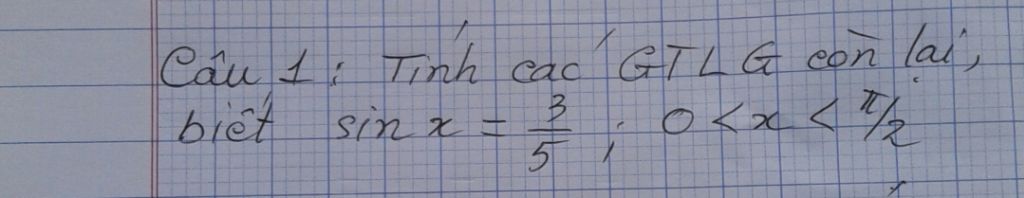 Câu 1 : Tính các GTLG còn lại,
biết sin x = 3/5 ; 0 < x < π/2